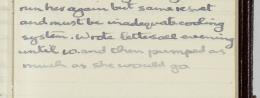 run her again but same result
and must be inadequate cooling
system. Wrote letters all evening
until 10. and then pumped as
much as she would go